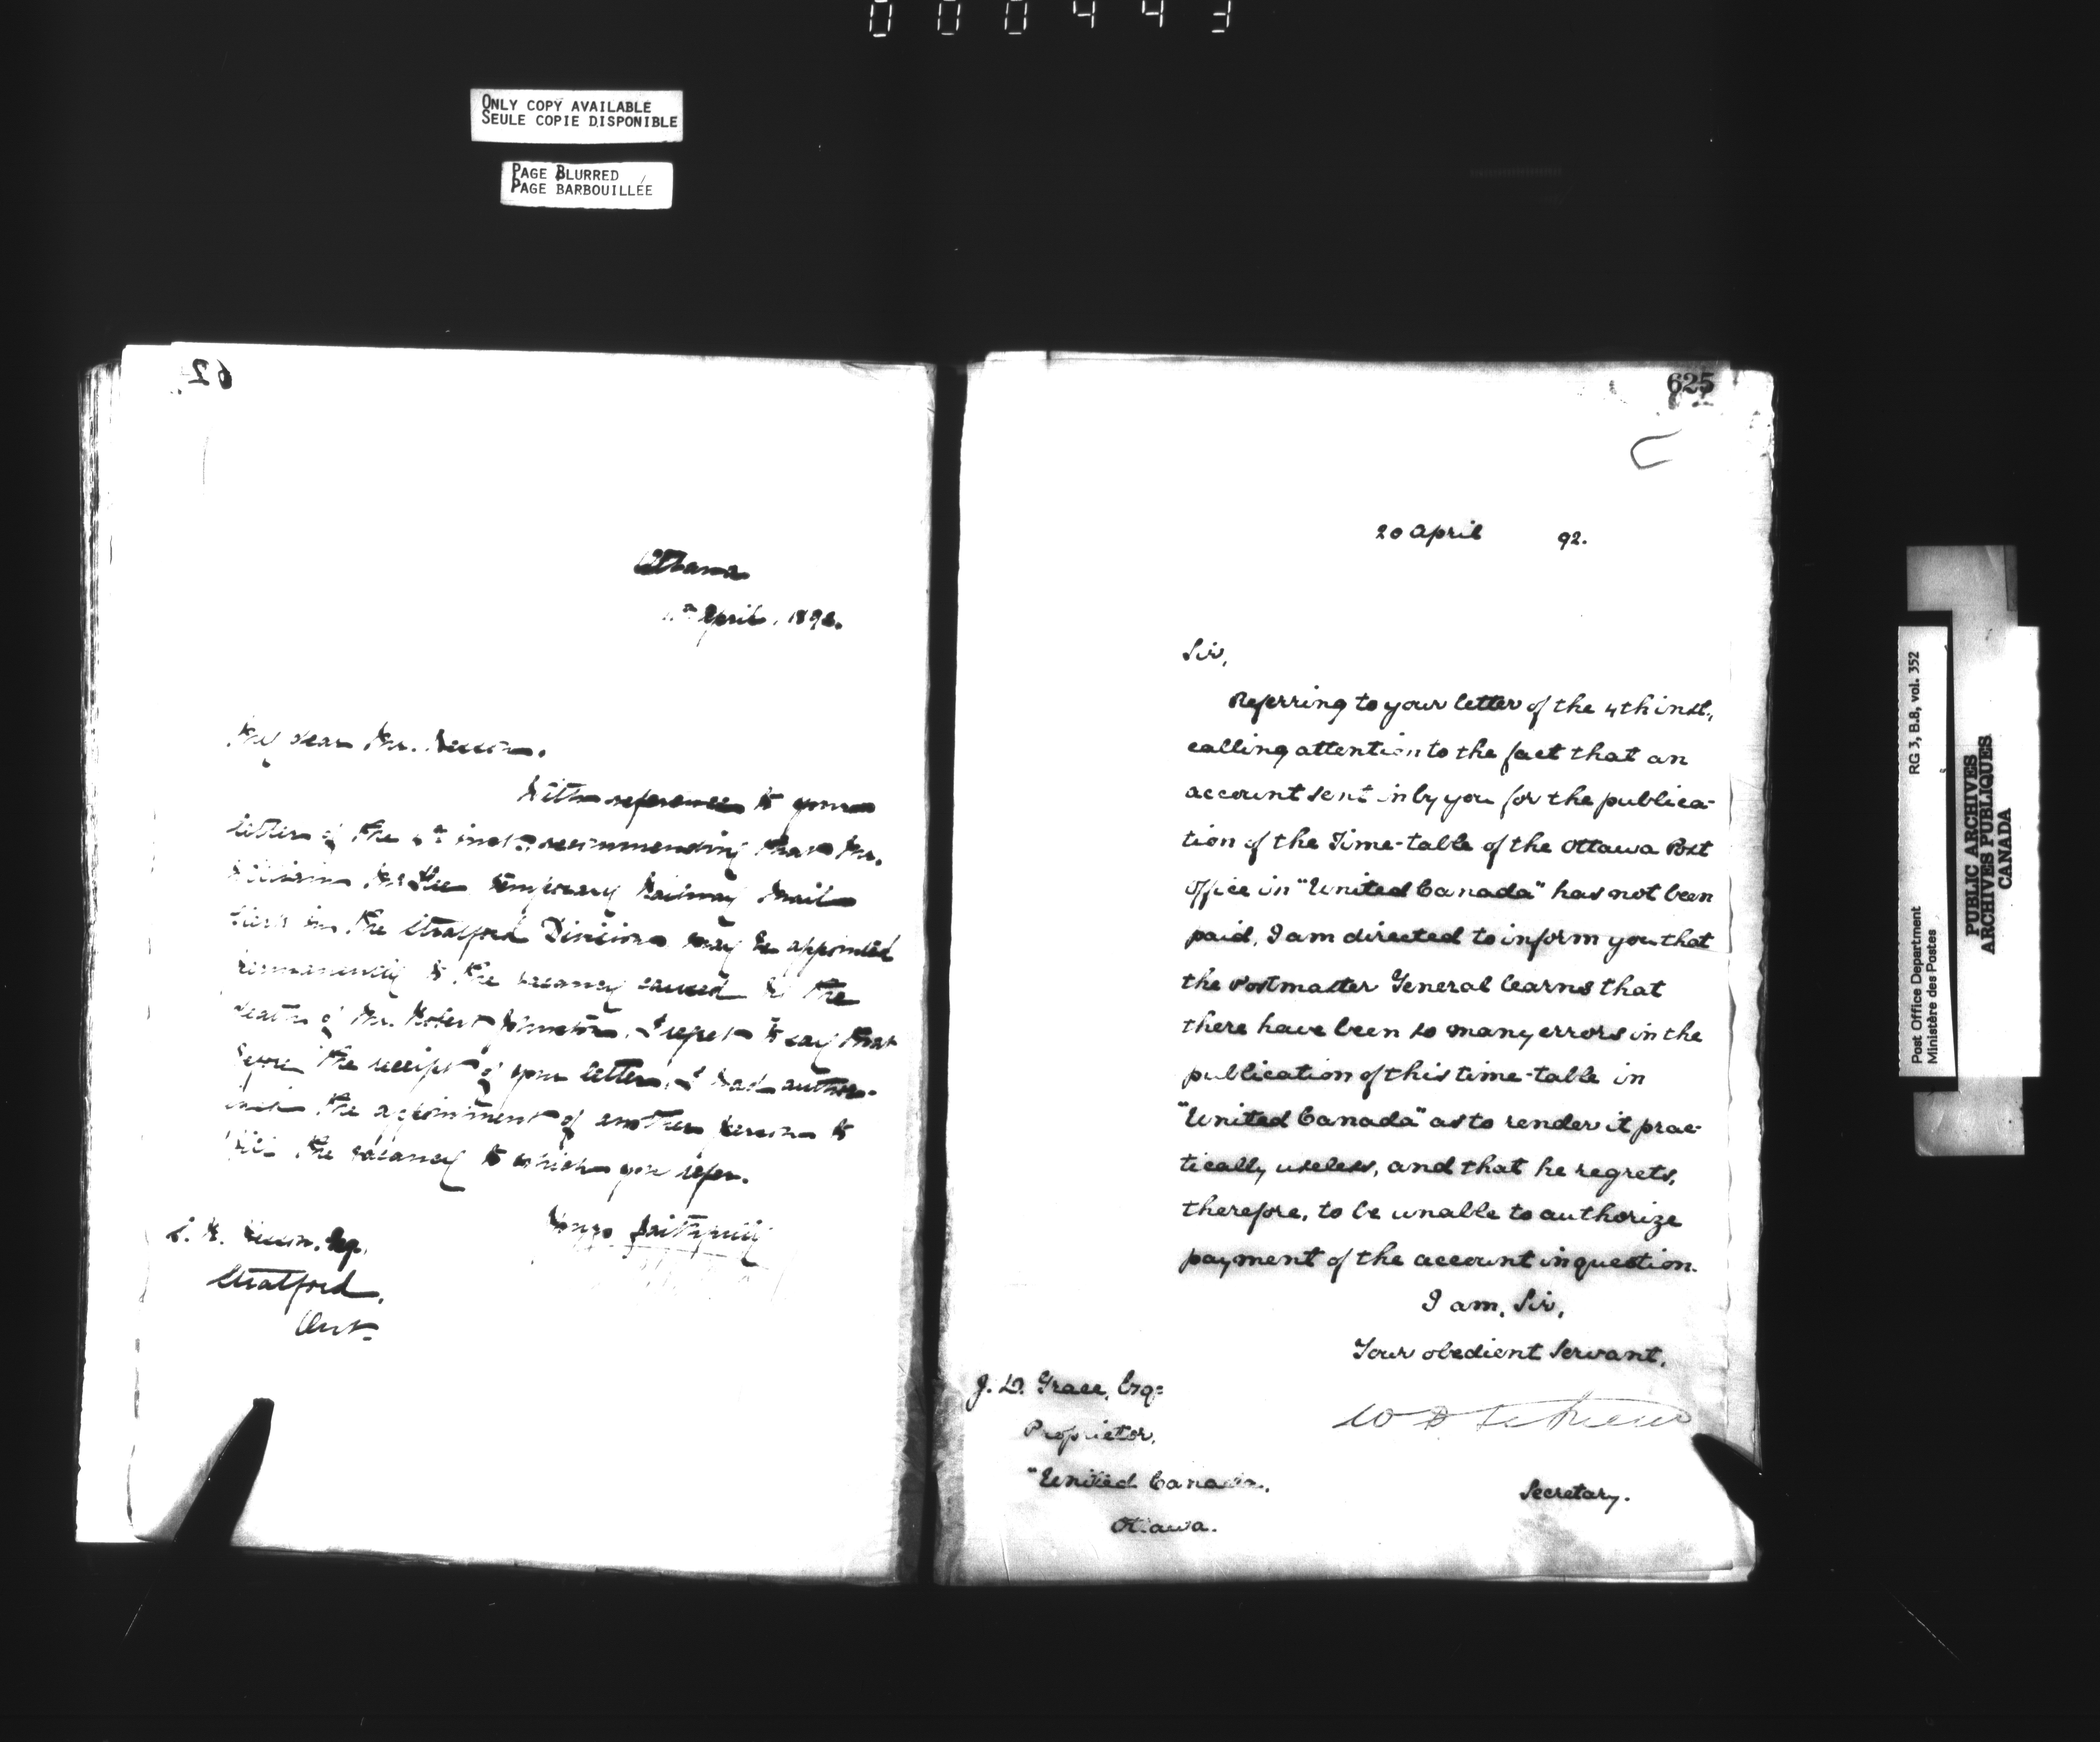 000443
ONLY COPY AVAILABLE
SEULE COPIE DISPONIBLE
PAGE BLURRED
PAGE BARBOUILLÉE
62
Ottawa
April, 1892.
My dear Mr.
With reference to your
letter of the inst. recommending that Mr.
temporary Railway Mail
Clerk in the Stratford Division may be appointed
permanently to the vacancy caused by the
death of Mr. Robert Johnston, I regret to say that
before the receipt of your letter, I had author-
ized the appointment of another person to
fill the vacancy to which you refer.
Yours faithfully
Esq.
Stratford,
Ont.
625
20 April 92.
Sir,
Referring to your letter of the 4th inst.,
calling attention to the fact that an
account sent in by you for the publica-
tion of the Time-table of the Ottawa Post
Office in "United Canada" has not been
paid, I am directed to inform you that
the Postmaster General learns that
there have been so many errors in the
publication of this time-table in
"United Canada" as to render it prac-
tically useless, and that he regrets,
therefore, to be unable to authorize
payment of the account in question.
I am, Sir,
Your obedient Servant,
J. D. Grace, Esq:
Proprietor,
"United Canada,
Ottawa.
Secretary.
Post Office Department RG 3, B.8, vol. 352
Ministère des Postes
PUBLIC ARCHIVES
ARCHIVES PUBLIQUES
CANADA